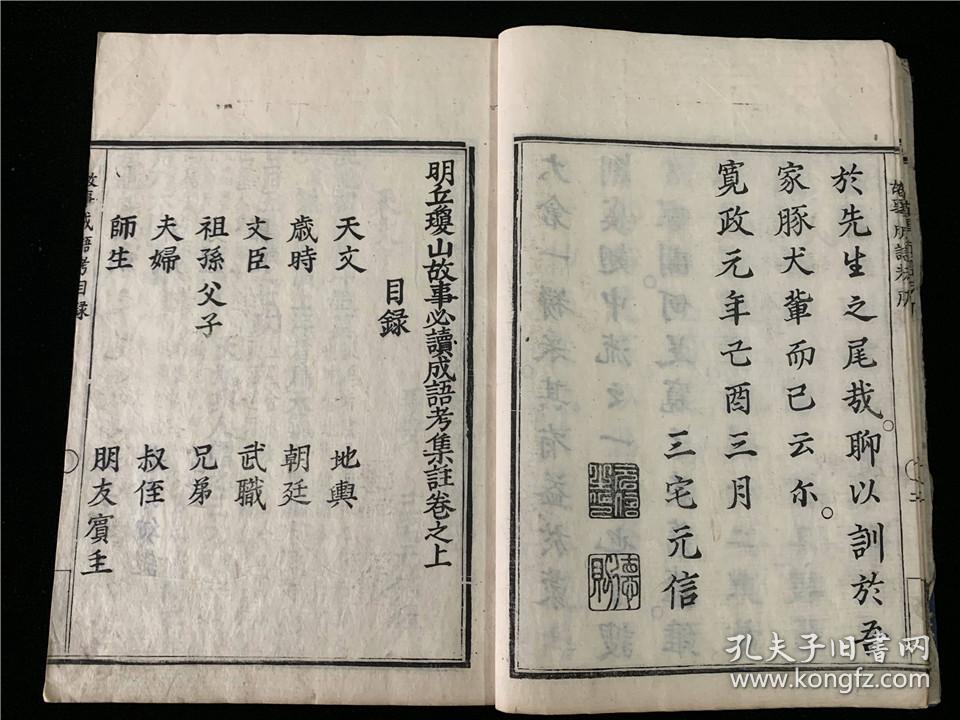 於先生之尾哉聊以訓於吾
家豚犬輩而已云尓。
寛政元年己酉三月
三宅元信
明丘瓊山故事必讀成語考集註卷之上
目録
天文 地輿
歳時 朝廷
文臣 武職
祖孫父子 兄弟
夫婦 叔侄
師生 朋友賓主
故事成語考目録
孔夫子旧书网
www.kongfz.com